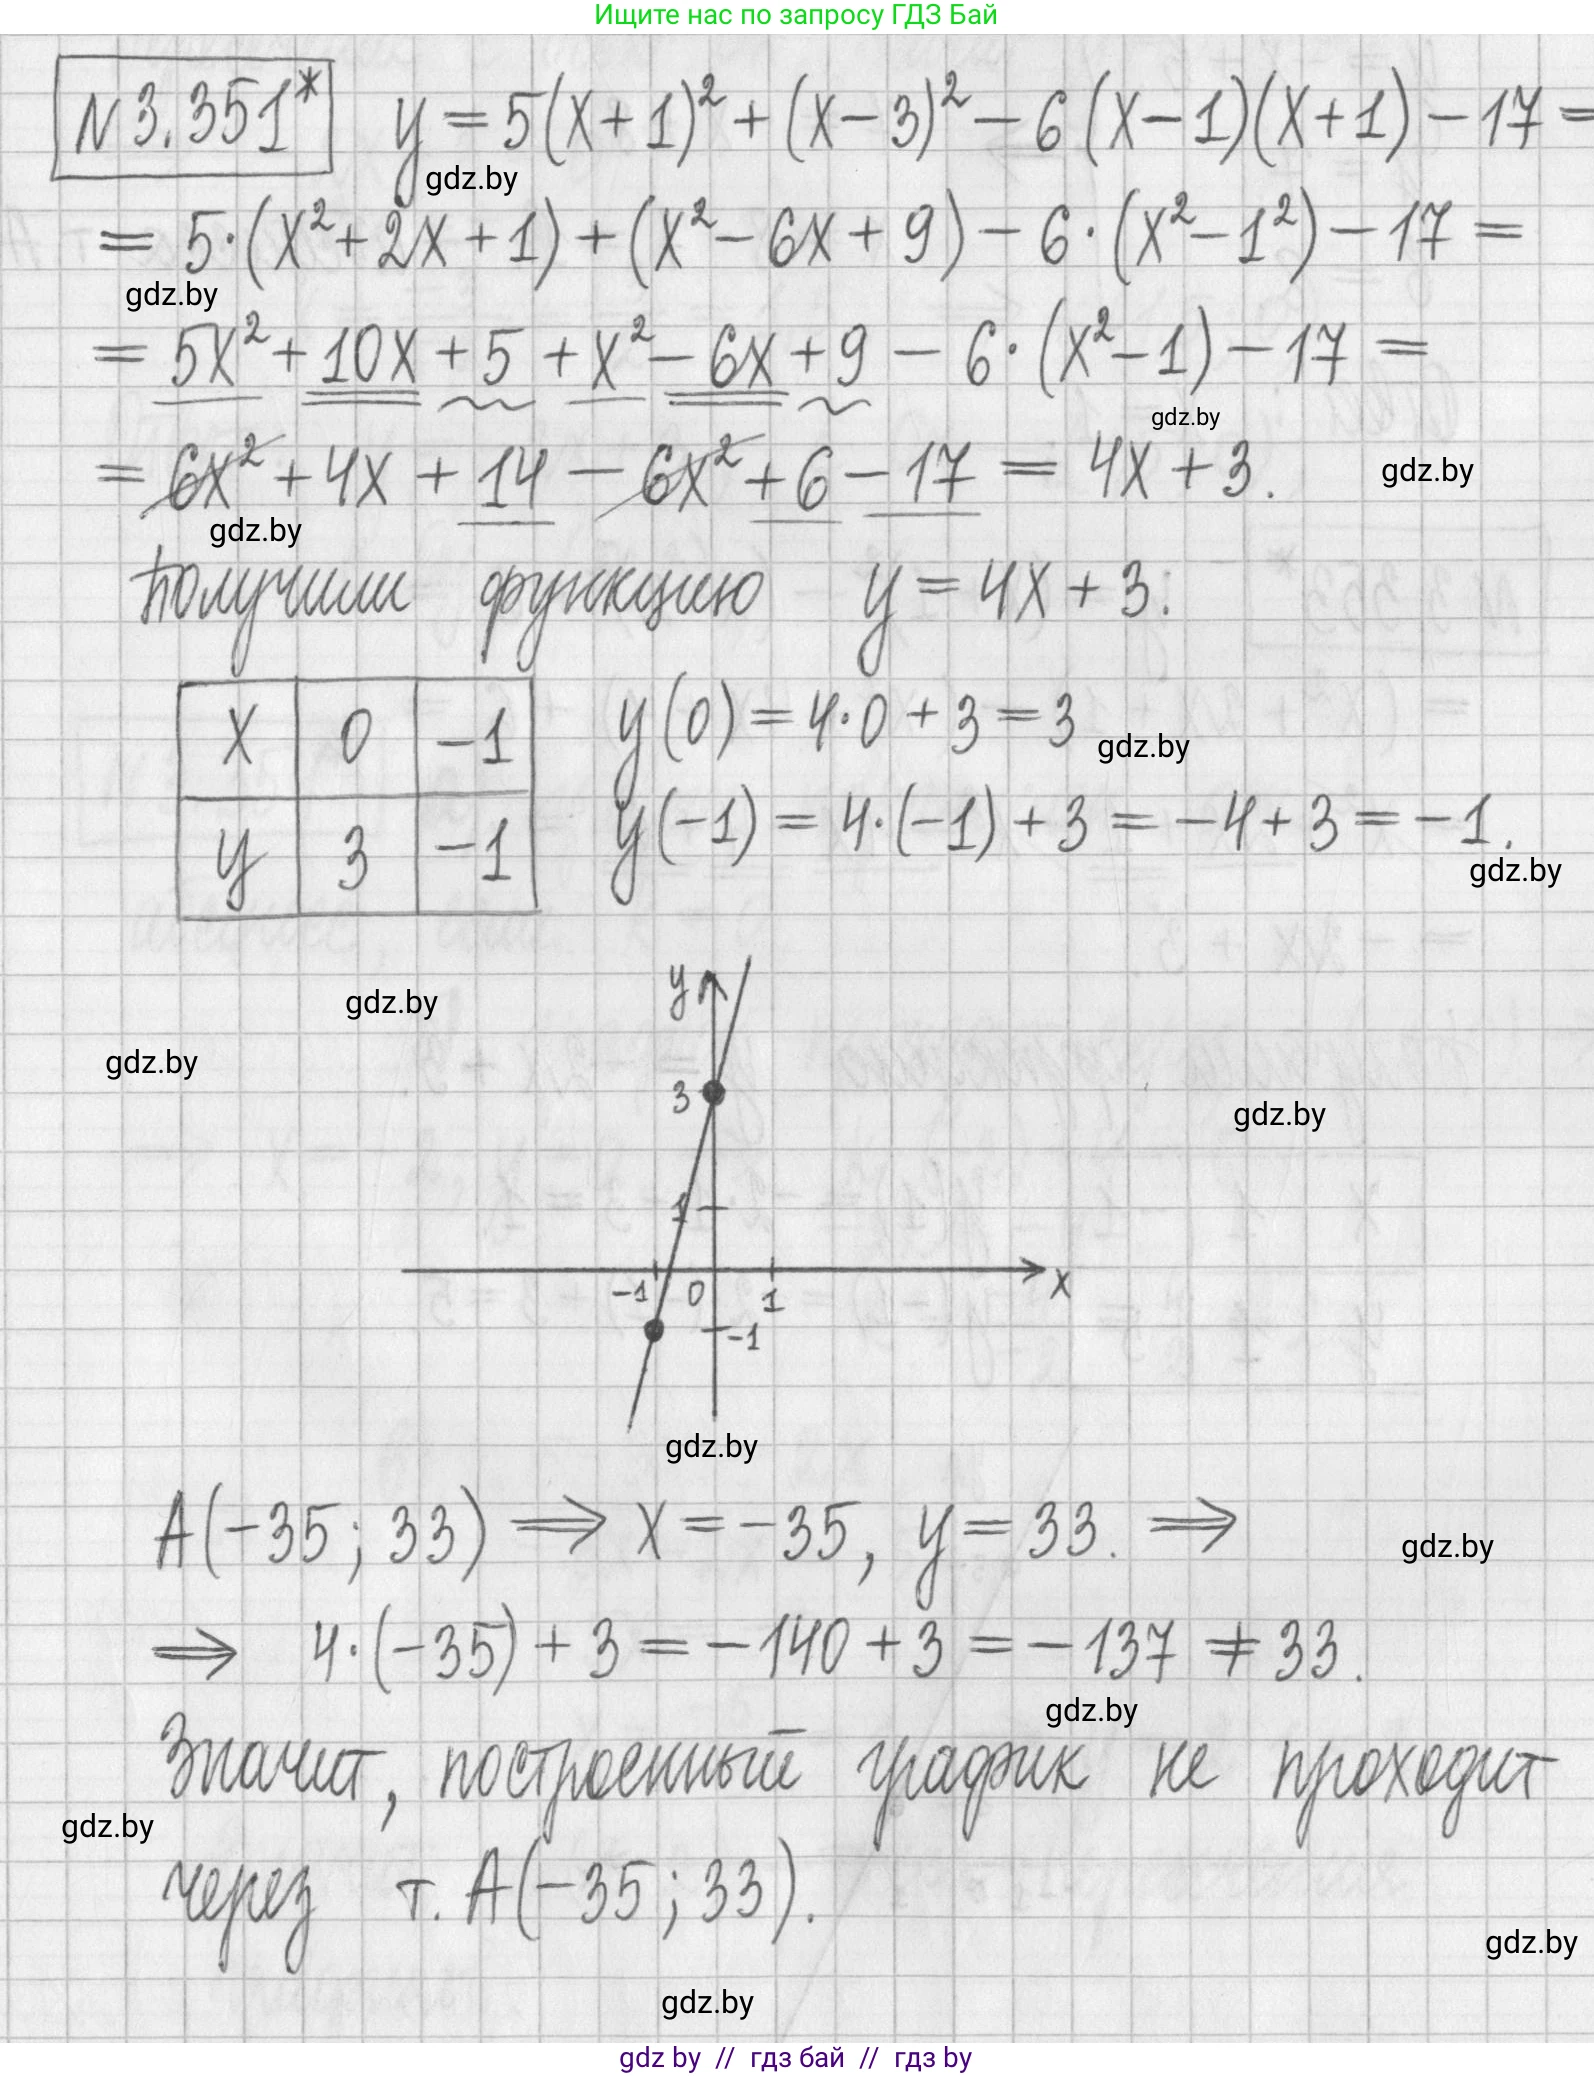 Ищите нас по запросу ГДЗ Бай
N 3.351* y = 5(x+1)² + (x-3)² - 6(x-1)(x+1) - 17 =
gdz.by
= 5·(x²+2x+1) + (x²-6x+9) - 6·(x²-1²) - 17 =
gdz.by
= 5x² + 10x + 5 + x² - 6x + 9 - 6·(x²-1) - 17 =
gdz.by
= 6x² + 4x + 14 - 6x² + 6 - 17 = 4x + 3. gdz.by
gdz.by
Получили функцию y = 4x + 3:
x 0 -1 y(0) = 4·0 + 3 = 3
gdz.by
y 3 -1 y(-1) = 4·(-1) + 3 = -4 + 3 = -1.
gdz.by
y
gdz.by
gdz.by
3
gdz.by
1
-1 0 1 x
-1
gdz.by
A(-35; 33) ⇒ x = -35, y = 33. ⇒
gdz.by
⇒ 4·(-35) + 3 = -140 + 3 = -137 ≠ 33.
gdz.by
Значит, построенный график не проходит
gdz.by
через т. A(-35; 33).
gdz.by
gdz.by
gdz by // гдз бай // гдз by